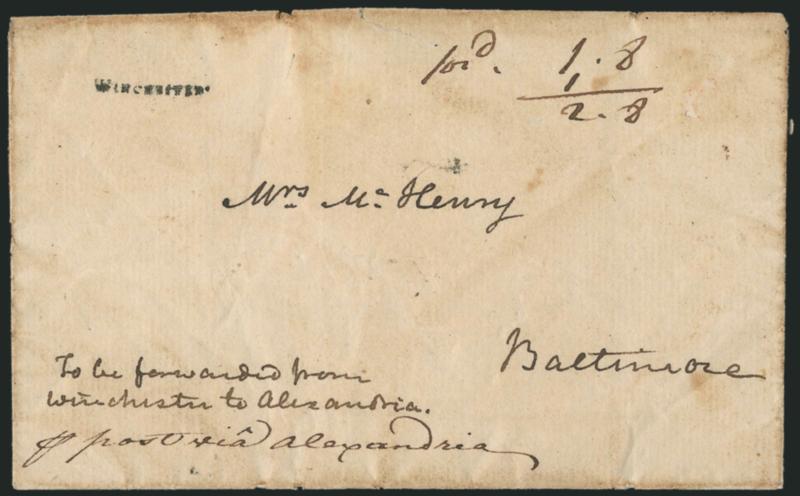 Winchester.
pid. 1.8
1
2.8
Mrs Mc Henry
Baltimore
To be forwarded from
winchester to Alexandria.
post viâ Alexandria